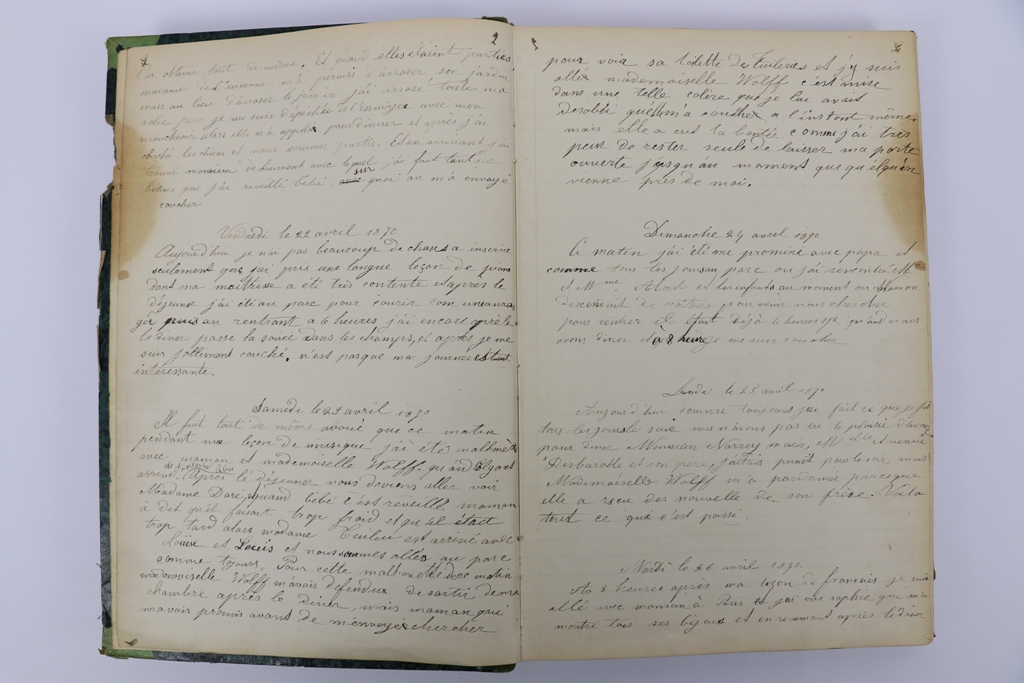 2
j'en obtenu tout de même. Et quand elles étaient parties
madame de m'a permis d'arroser son jardin
mais au lieu d'arroser le jardin j'ai arrosé toute ma
robe puis je me suis dépêchée de l'essuyer avec mon
mouchoir alors elle m'a appelé pour dinner et après j'ai
couché les chiens et nous sommes partis. Et en arrivant j'ai
trouvé monsieur de avec lequel j'ai fait tant de
bétises que j'ai reveillé bébé. sur quoi on m'a envoyé
coucher
Vendredi le 22 avril 1870
Aujourd'hui je n'ai pas beaucoup de choses a inscrire
seulement que j'ai pris une longue leçon de piano
dont ma maîtresse a été très contente et après le
déjeuner j'ai été au parc pour courir com une enra
gée puis en rentrant a 6 heures j'ai encore après le
le diner passé la soirée dans les champs, et après je me
suis joliment couché. n'est pas que ma journée était
intéressante.
Samedi le 23 avril 1870
Il faut tout de même avoué que ce matin
pendant ma leçon de musique j'ai été malhonête
avec maman et mademoiselle Wolff. quand
arrivé. Après le déjeuner nous devions aller voir
Madame Doré, quand bébé c'est réveillé maman
a dit qu'il faisait trop froid et qu'il était
trop tard alors madame est arrivé avec
Louise et Louis et nous sommes allés au parc
comme toujours. Pour cette malhonêteté de ce matin
mademoiselle Wolff m'avais défendue de sortir de ma
chambre après le diner, mais maman qui
m'avais promis avant de m'envoyé chercher
pour voir sa toilette des Tuileries et j'y suis
allée mademoiselle Wolff c'est mise
dans une telle colère que je lui avait
désobéi qu'elle m'a couchée a l'instant même
mais elle a eus la bonté comme j'ai très
peur de rester seule de laisser ma porte
ouverte jusqu'au moment que quélqu'un
vienne près de moi.
Dimanche 24 avril 1870
Ce maten j'ai été me promené avec papa et
comme tous les jours au parc ou j'ai rencontré Mr
et Mme et les enfants au moment ou maman
descendait de voiture pour venir nous chercher
pour rentrer il était déjà 6 heures 1/2 quand nous
avons diner et à 8 heure je me suis couchée
Lundi le 25 avril 1870
Aujourd'hui comme toujours j'ai fait ce que je fais
tous les jours le soir nous n'avons pas eu le plaisir d'avoir
pour diner Monsieur mais, Melle
Desbarolle et son père, j'étais punit pour le soir mais
Mademoiselle Wolff m'a pardonné puisque
elle a reçu des nouvelle de son frère. Voila
tout ce qui c'est passé.
Mardi le 26 avril 1870.
A 2 heures après ma leçon de francais je suis
allé avec maman à Paris et j'ai vue sophie qui m'a
montré tous ses bijoux et en revenant après le diner